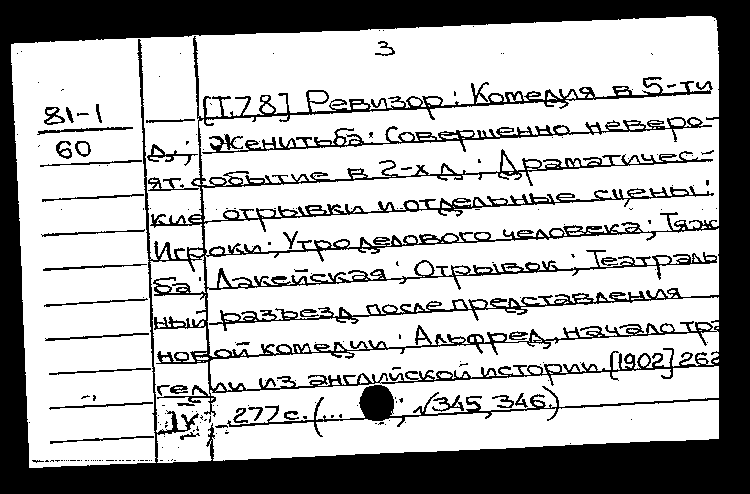 3
81-1
60
[Т.7,8] Ревизор: Комедия в 5-ти
д.; Женитьба: Совершенно неверо-
ят. событие в 2-х д.; Драматичес-
кие отрывки и отдельные сцены:
Игроки; Утро делового человека; Тяж
ба; Лакейская; Отрывок; Театраль
ный разъезд после представления
новой комедии; Альфред, начало тра
гедии из английской истории. [1902] 262
IV, 277 с. (... ; √345, 346.)